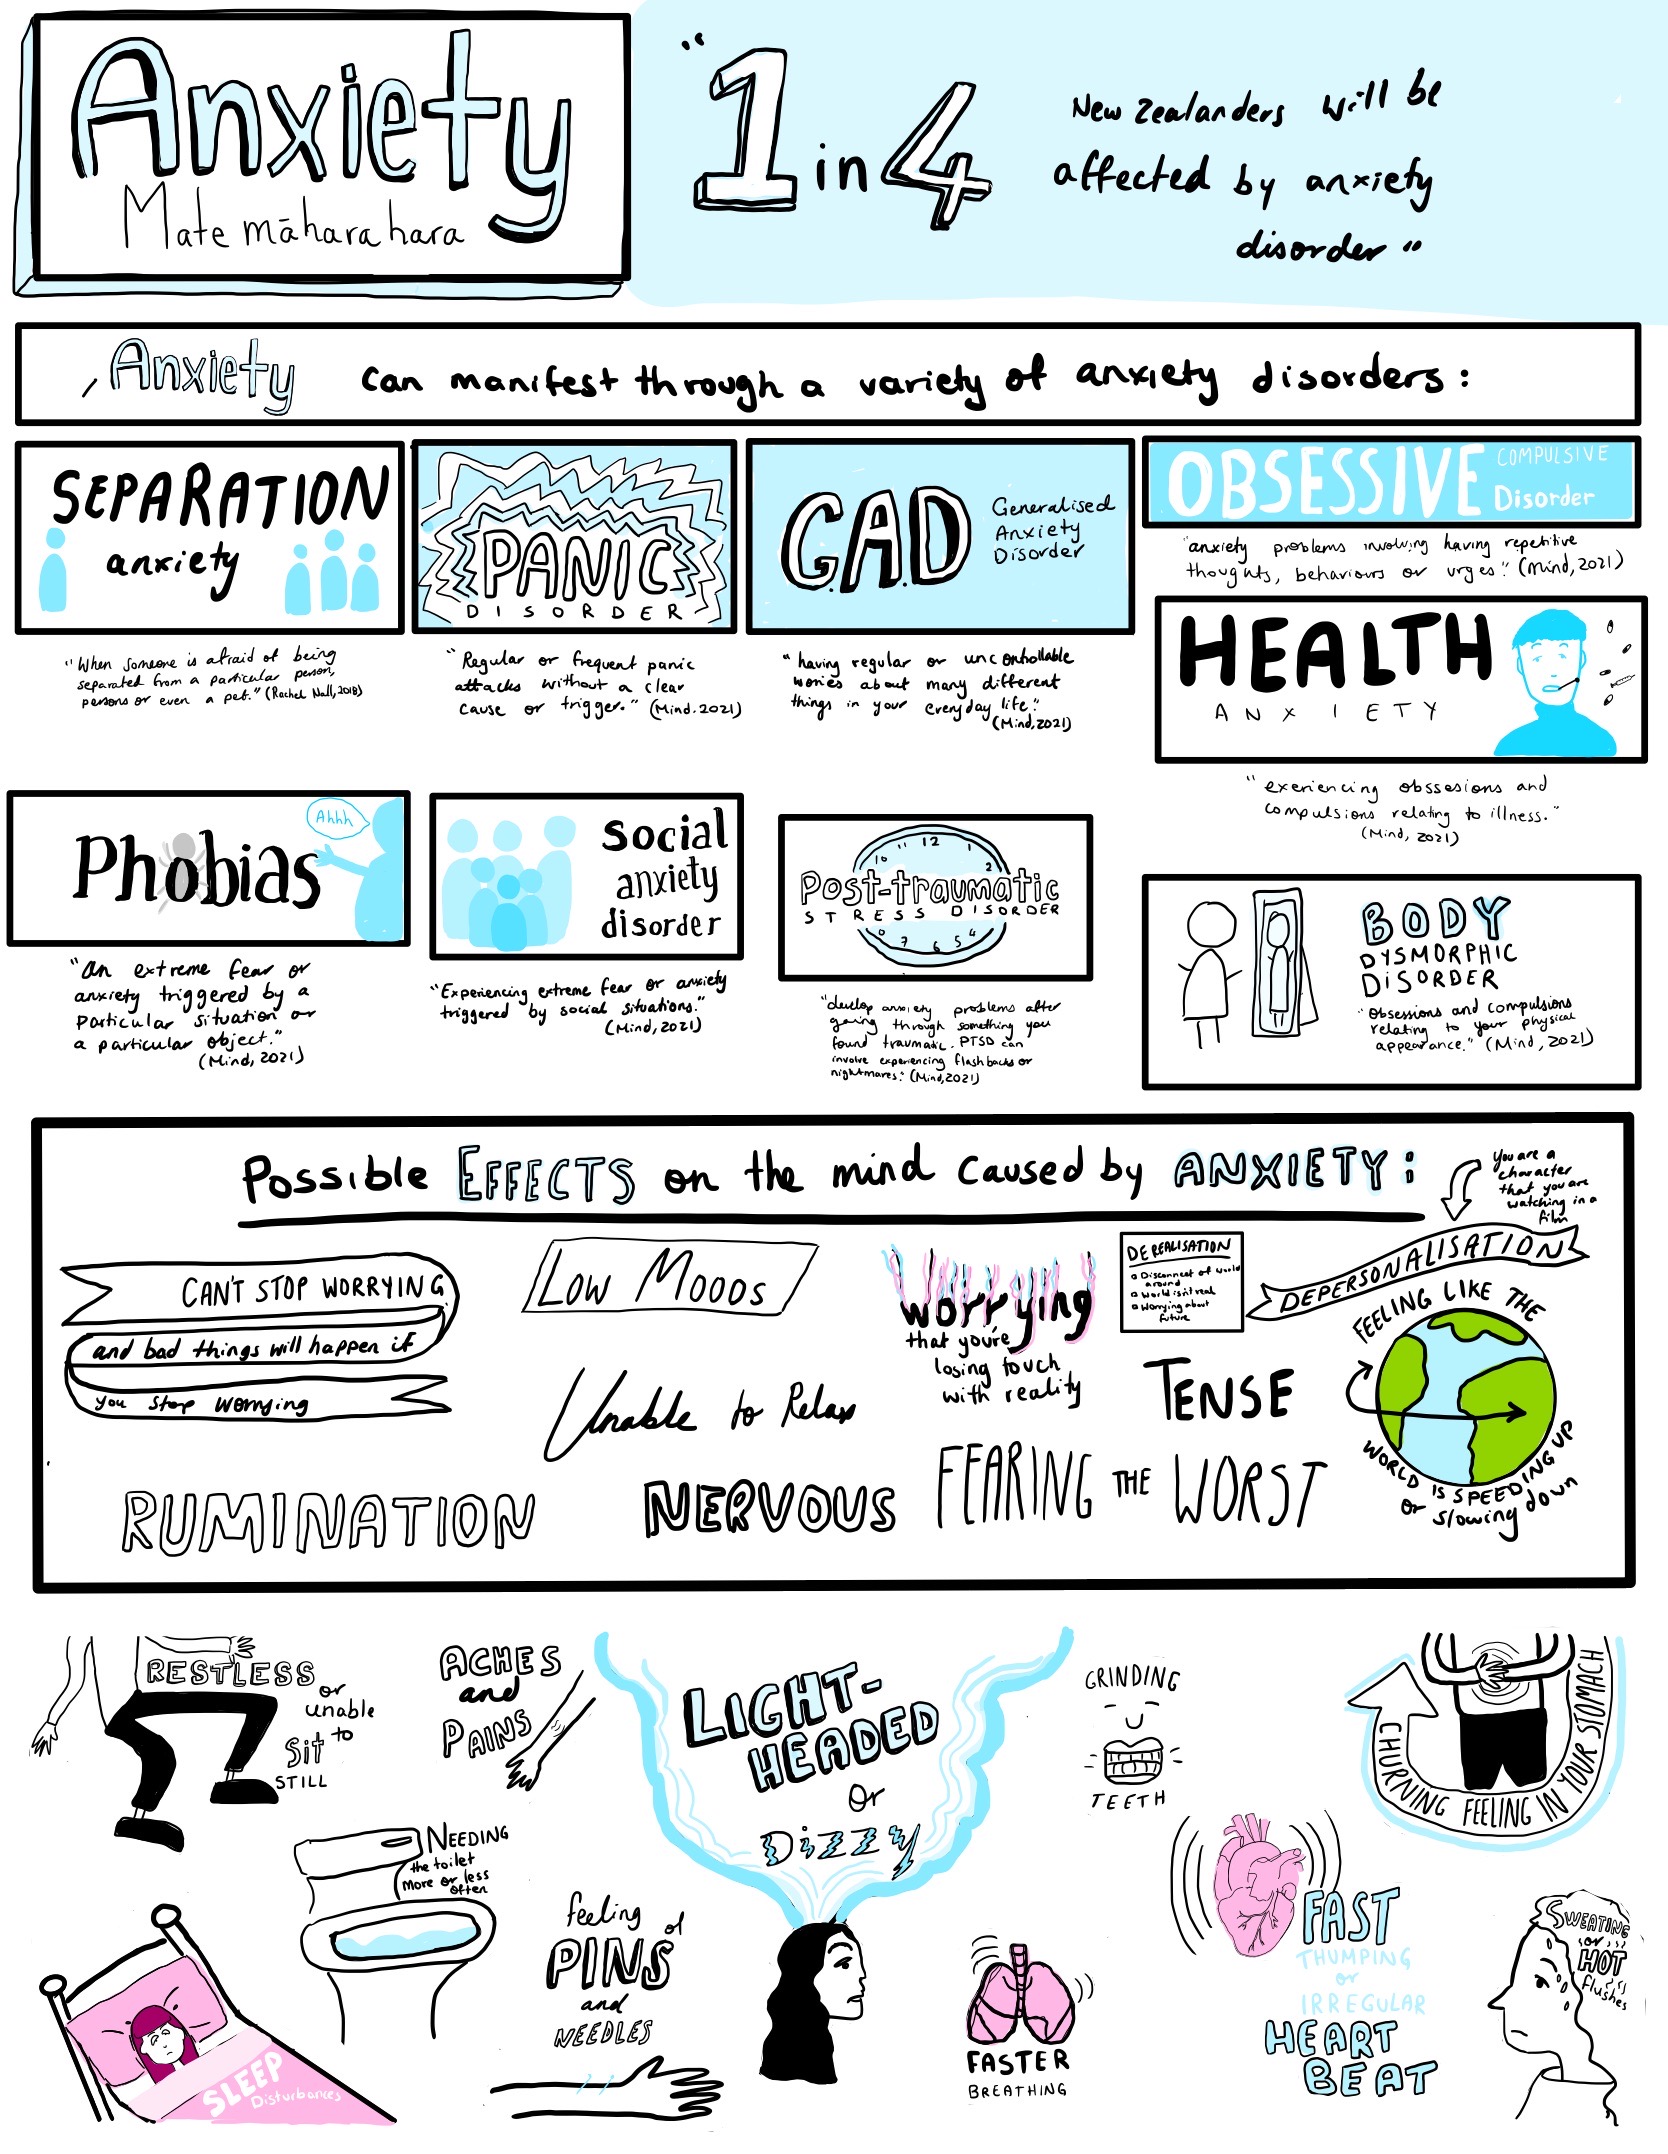 Anxiety
Mate māharahara
"1 in 4
New Zealanders will be
affected by anxiety
disorder"
Anxiety can manifest through a variety of anxiety disorders:
SEPARATION
anxiety
"When someone is afraid of being
separated from a particular person,
persons or even a pet." (Rachel Nall, 2018)
PANIC
DISORDER
"Regular or frequent panic
attacks without a clear
cause or trigger." (Mind. 2021)
G.A.D
Generalised
Anxiety
Disorder
"having regular or uncontrollable
worries about many different
things in your everyday life."
(Mind, 2021)
OBSESSIVE
COMPULSIVE
Disorder
"anxiety problems involving having repetitive
thoughts, behaviours or urges." (Mind, 2021)
HEALTH
ANXIETY
"exeriencing obssesions and
compulsions relating to illness."
(Mind, 2021)
Ahhh
Phobias
"an extreme fear or
anxiety triggered by a
particular situation or
a particular object."
(Mind, 2021)
social
anxiety
disorder
"Experiencing extreme fear or anxiety
triggered by social situations."
(Mind, 2021)
10 11 12 1 2
Post-traumatic
STRESS DISORDER
8 7 6 5 4
"develop anxiety problems after
going through something you
found traumatic. PTSD can
involve experiencing flashbacks or
nightmares." (Mind, 2021)
BODY
DYSMORPHIC
DISORDER
"Obsessions and compulsions
relating to your physical
appearance." (Mind, 2021)
Possible EFFECTS on the mind caused by ANXIETY:
You are a
character
that you are
watching in a
film
DEPERSONALISATION
CAN'T STOP WORRYING
and bad things will happen if
you stop worrying
LOW MOODS
Worrying
that you're
losing touch
with reality
DEREALISATION
Disconnect of world
around
World isn't real
Worrying about
future
FEELING LIKE THE
WORLD IS SPEEDING UP
or slowing down
Unable to Relax
TENSE
RUMINATION
NERVOUS
FEARING THE WORST
RESTLESS
or
unable
to
Sit
STILL
ACHES
and
PAINS
LIGHT-
HEADED
or
Dizzy
GRINDING
TEETH
CHURNING FEELING IN YOUR STOMACH
NEEDING
the toilet
more or less
often
feeling of
PINS
and
NEEDLES
FAST
THUMPING
or
IRREGULAR
HEART
BEAT
SWEATING
or
HOT
flushes
SLEEP
Disturbances
FASTER
BREATHING